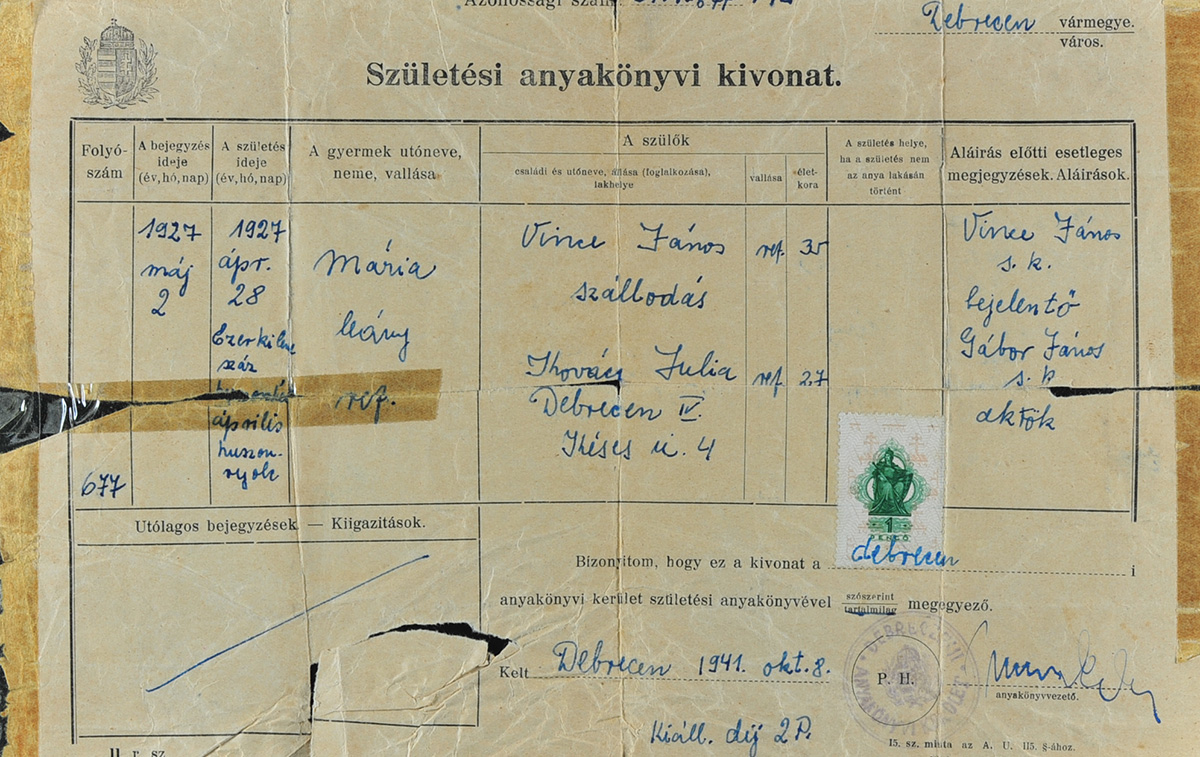 Azonossági szám:
Debrecen vármegye.
város.
Születési anyakönyvi kivonat.
Folyó-
szám
A bejegyzés
ideje
(év, hó, nap)
A születés
ideje
(év, hó, nap)
A gyermek utóneve,
neme, vallása
A szülők
családi és utóneve, állása (foglalkozása),
lakhelye
vallása
élet-
kora
A születés helye,
ha a születés nem
az anya lakásán
történt
Aláírás előtti esetleges
megjegyzések. Aláírások.
677
1927
máj
2
1927
ápr.
28
Ezerkilenc
száz
április
huszon-
nyolc
Mária
leány
ref.
Vince János ref. 35
szállodás
Kovács Julia ref. 27
Debrecen IV.
Késes u. 4
Vince János
s. k.
bejelentő
Gábor János
s. k
aktók
Utólagos bejegyzések. — Kiigazitások.
1
PENGŐ
Bizonyitom, hogy ez a kivonat a debrecen i
anyakönyvi kerület születési anyakönyvével szószerint
tartalmilag megegyező.
Kelt Debrecen 1941. okt. 8.
P. H.
anyakönyvvezető.
Kiáll. dij 2 P.
15. sz. minta az A. U. 115. §-ához.
11 r. sz.